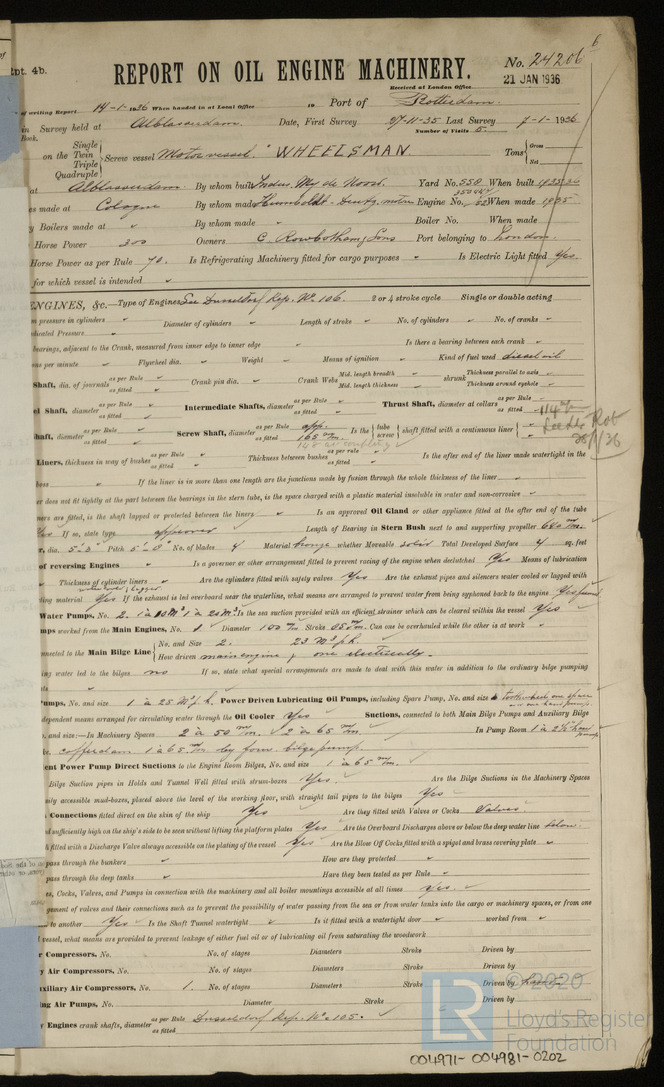 6
Rpt. 4b.
REPORT ON OIL ENGINE MACHINERY.
No. 24206
21 JAN 1936
Received at London Office
of writing Report 14-1-1936 When handed in at Local Office 19 Port of Rotterdam.
in Survey held at Alblasserdam. Date, First Survey 27-11-35 Last Survey 7-1-1936
Book. Number of Visits 5.
on the Single Twin Triple Quadruple Screw vessel Motorvessel. "WHEELSMAN. Tons Gross Net
at Alblasserdam. By whom built Yard No. 558 When built 1935-36
es made at Cologne By whom made Humboldt-Deutz Engine No. When made 1935
y Boilers made at By whom made Boiler No. When made
Horse Power 300 Owners C. Rowbotham, Sons Port belonging to London.
Horse Power as per Rule 70. Is Refrigerating Machinery fitted for cargo purposes Is Electric Light fitted Yes.
for which vessel is intended
ENGINES, &c.—Type of Engines See Dusseldorf Rep. No. 106. 2 or 4 stroke cycle Single or double acting
m pressure in cylinders Diameter of cylinders Length of stroke No. of cylinders No. of cranks
ndicated Pressure
bearings, adjacent to the Crank, measured from inner edge to inner edge Is there a bearing between each crank
ons per minute Flywheel dia. Weight Means of ignition Kind of fuel used diesel oil
Shaft, dia. of journals as per Rule as fitted Crank pin dia. Crank Webs Mid. length breadth Mid. length thickness shrunk Thickness parallel to axis Thickness around eyehole
el Shaft, diameter as per Rule as fitted Intermediate Shafts, diameter as per Rule as fitted Thrust Shaft, diameter at collars as per Rule as fitted
haft, diameter as per Rule as fitted Screw Shaft, diameter as per Rule app. as fitted 165 m/m. Is the tube screw shaft fitted with a continuous liner
28/1/36
Liners, thickness in way of bushes as per Rule as fitted Thickness between bushes as per rule as fitted Is the after end of the liner made watertight in the
boss If the liner is in more than one length are the junctions made by fusion through the whole thickness of the liner
er does not fit tightly at the part between the bearings in the stern tube, is the space charged with a plastic material insoluble in water and non-corrosive
ners are fitted, is the shaft lapped or protected between the liners Is an approved Oil Gland or other appliance fitted at the after end of the tube
Yes If so, state type approved Length of Bearing in Stern Bush next to and supporting propeller 660 m/m.
r, dia. 5'-3" Pitch 5'-0" No. of blades 4 Material bronze whether Moveable solid Total Developed Surface 4 sq. feet
of reversing Engines Is a governor or other arrangement fitted to prevent racing of the engine when declutched Yes Means of lubrication
Thickness of cylinder liners Are the cylinders fitted with safety valves Yes Are the exhaust pipes and silencers water cooled or lagged with
ting material Yes If the exhaust is led overboard near the waterline, what means are arranged to prevent water from being syphoned back to the engine Yes
Water Pumps, No. 2. Is the sea suction provided with an efficient strainer which can be cleared within the vessel Yes
mps worked from the Main Engines, No. 1 Diameter 100 m/m Stroke Can one be overhauled while the other is at work
nnected to the Main Bilge Line No. and Size 2. 23 M³ p.h. How driven main engine & one electrically.
ing water led to the bilges no If so, state what special arrangements are made to deal with this water in addition to the ordinary bilge pumping
ts
umps, No. and size 1 à 25 M³ p.h. Power Driven Lubricating Oil Pumps, including Spare Pump, No. and size
dependent means arranged for circulating water through the Oil Cooler Yes Suctions, connected to both Main Bilge Pumps and Auxiliary Bilge
, and size:—In Machinery Spaces 2 à 50 m/m. 2 à 65 m/m. In Pump Room
cofferdam 1 à 65 m/m by bilge pump.
ent Power Pump Direct Suctions to the Engine Room Bilges, No. and size 1 à 65 m/m.
Bilge Suction pipes in Holds and Tunnel Well fitted with strum-boxes Yes. Are the Bilge Suctions in the Machinery Spaces
sily accessible mud-boxes, placed above the level of the working floor, with straight tail pipes to the bilges Yes
Connections fitted direct on the skin of the ship Yes Are they fitted with Valves or Cocks Valves.
d sufficiently high on the ship's side to be seen without lifting the platform plates Yes Are the Overboard Discharges above or below the deep water line below.
h fitted with a Discharge Valve always accessible on the plating of the vessel Yes Are the Blow Off Cocks fitted with a spigot and brass covering plate
pass through the bunkers How are they protected
pass through the deep tanks Have they been tested as per Rule
es, Cocks, Valves, and Pumps in connection with the machinery and all boiler mountings accessible at all times Yes.
gement of valves and their connections such as to prevent the possibility of water passing from the sea or from water tanks into the cargo or machinery spaces, or from one
t to another Yes Is the Shaft Tunnel watertight Is it fitted with a watertight door worked from
l vessel, what means are provided to prevent leakage of either fuel oil or of lubricating oil from saturating the woodwork
r Compressors, No. No. of stages Diameters Stroke Driven by
y Air Compressors, No. No. of stages Diameters Stroke Driven by
uxiliary Air Compressors, No. 1. No. of stages Diameters Stroke Driven by hand
ing Air Pumps, No. Diameter Stroke Driven by
y Engines crank shafts, diameter as per Rule as fitted Dusseldorf Rep. No. 105.
LR © 2020
Lloyd's Register
Foundation
004971-004981-0202